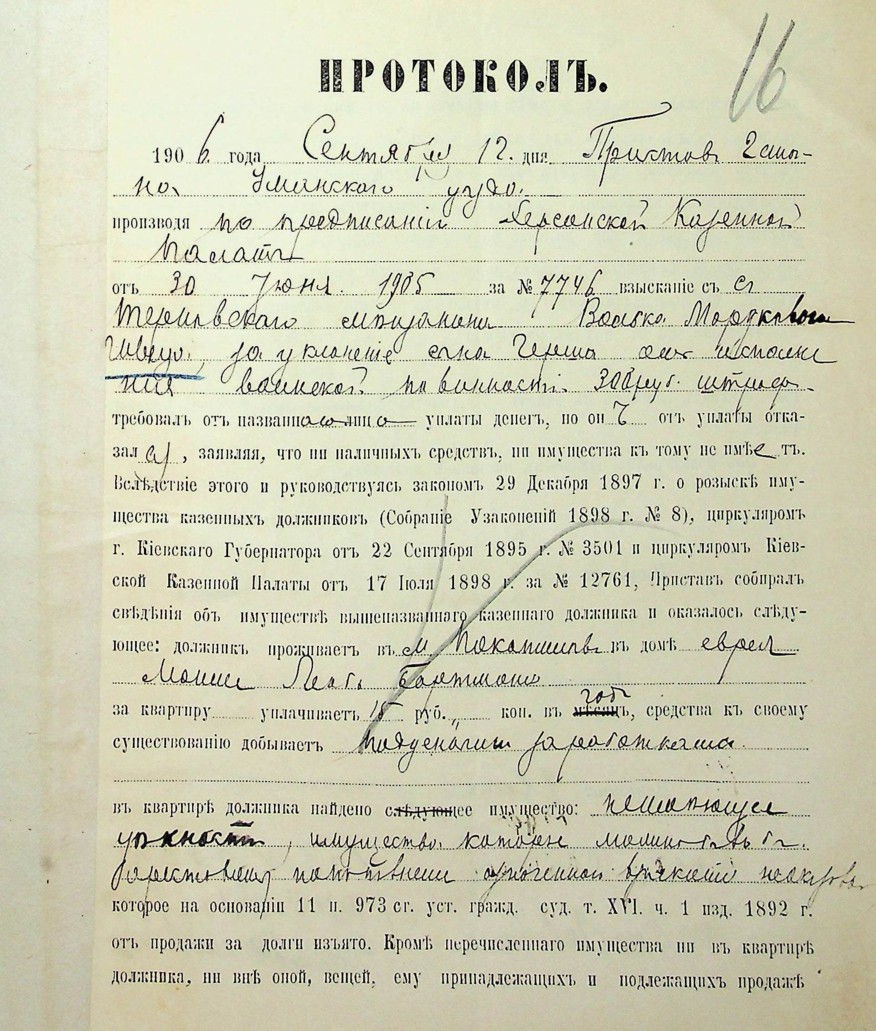 16
ПРОТОКОЛЪ.
1906 года Сентября 12 дня Приставъ 2 ста-
на Уманскаго уѣзда
производя по предписанію Херсонской Казенной
Палаты
отъ 30 Іюня 1905 за № 7746 взысканіе съ
мѣщанина Волька Мордковича
Швеца, за уклоненіе сына Герша отъ исполне
нія воинской повинности 300 руб. штрафа
требовалъ отъ названнаго лица уплаты денегъ, но онъ отъ уплаты отка-
залъ, заявляя, что ни наличныхъ средствъ, ни имущества къ тому не имѣетъ.
Вслѣдствіе этого и руководствуясь закономъ 29 Декабря 1897 г. о розыскѣ иму-
щества казенныхъ должниковъ (Собраніе Узаконеній 1898 г. № 8), циркуляромъ
г. Кіевскаго Губернатора отъ 22 Сентября 1895 г. № 3501 и циркуляромъ Кіев-
ской Казенной Палаты отъ 17 Іюля 1898 г. за № 12761, Приставъ собиралъ
свѣдѣнія объ имуществѣ вышеназваннаго казеннаго должника и оказалось слѣду-
ющее: должникъ проживаетъ въ м. въ домѣ еврея
за квартиру уплачиваетъ 15 руб. „ коп. въ мѣсяцъ годъ, средства къ своему
существованію добываетъ поденными заработками.
въ квартирѣ должника найдено слѣдующее имущество:
имущество
которое на основаніи 11 п. 973 ст. уст. гражд. суд. т. XVI. ч. 1 изд. 1892 г.
отъ продажи за долги изъято. Кромѣ перечисленнаго имущества ни въ квартирѣ
должника, ни внѣ оной, вещей, ему принадлежащихъ и подлежащихъ продажѣ